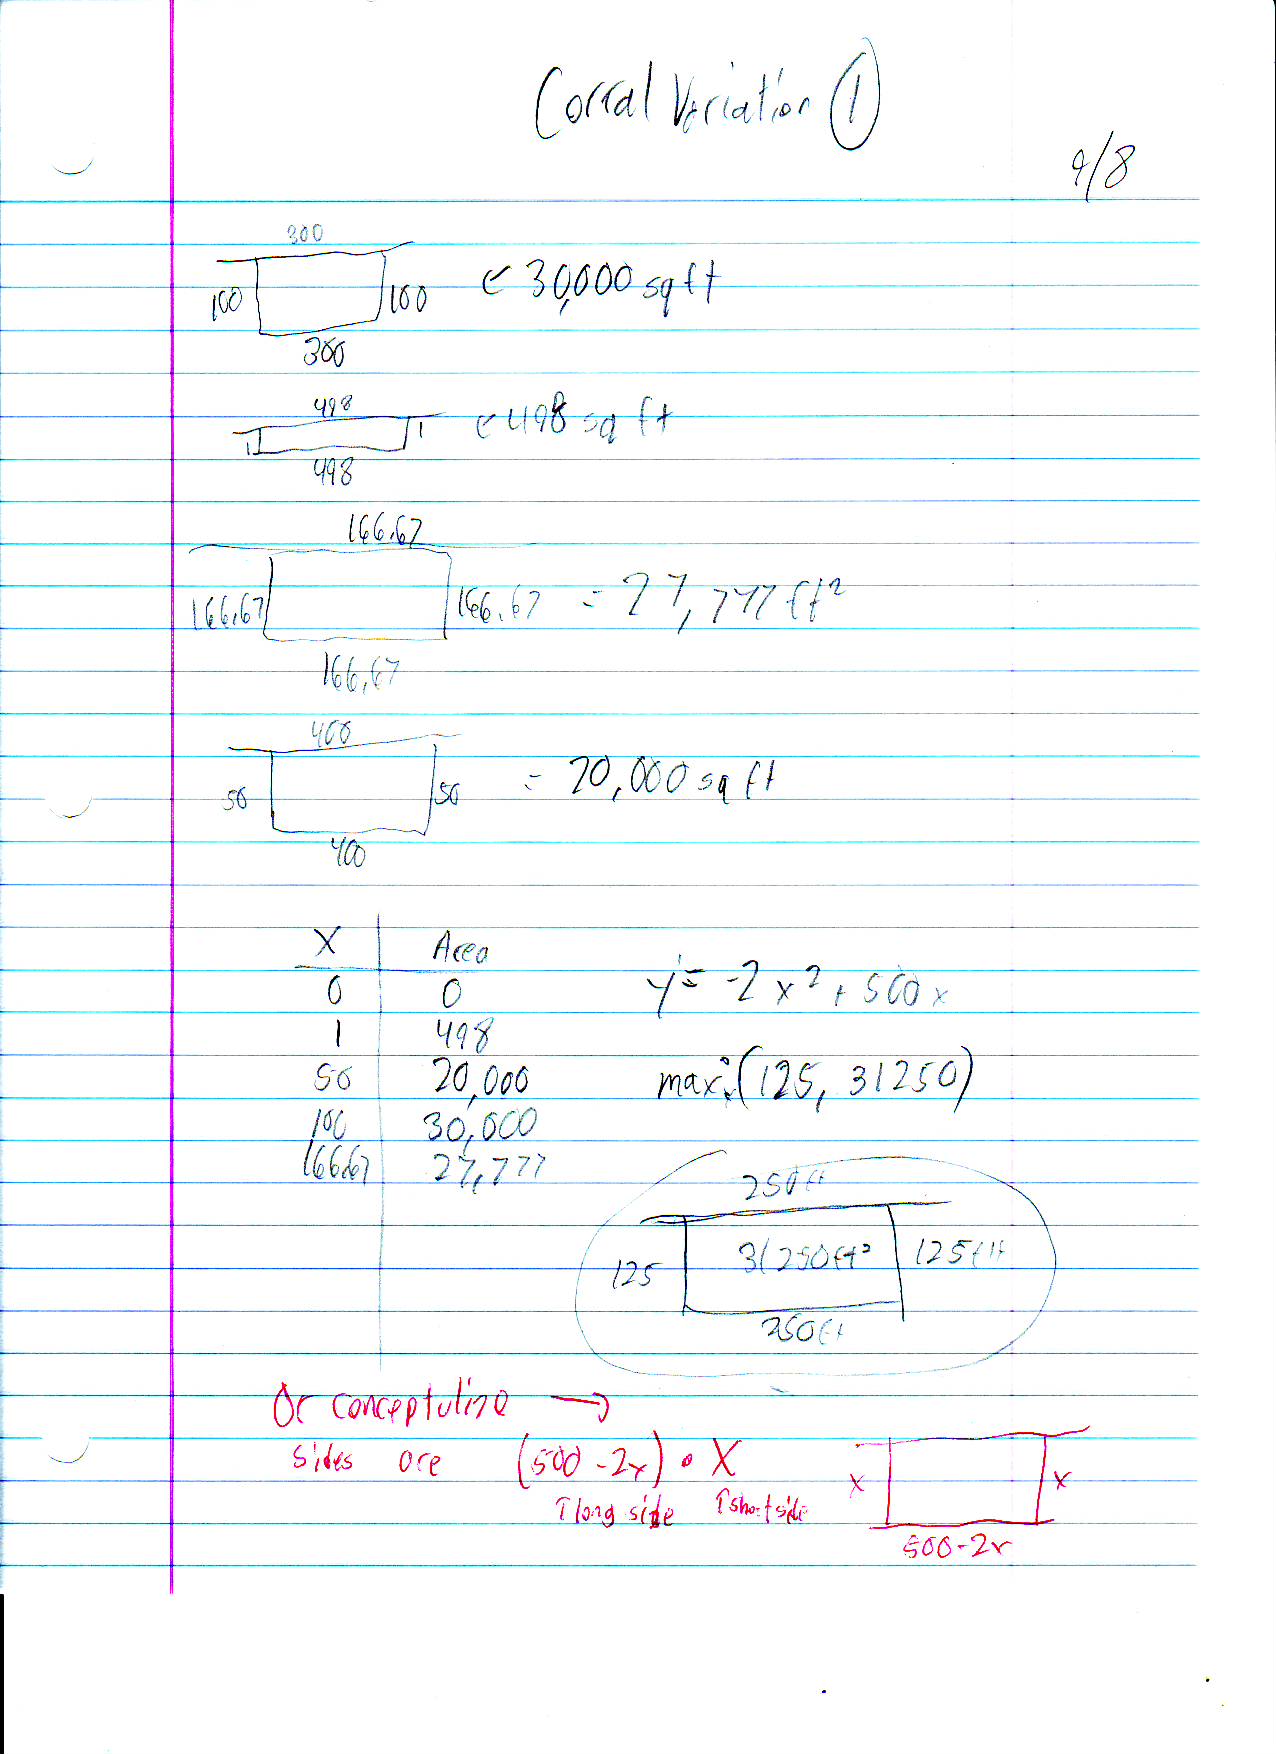 Corral Variation ①
9/8
300
100 100 < 30,000 sq ft
300
498
1 1 < 498 sq ft
498
166.67
166.67 166.67 = 27,777 ft²
166.67
400
50 50 = 20,000 sq ft
400
X Area
0 0
1 498
50 20,000
100 30,000
166.67 27,777
y = -2x² + 500x
max: (125, 31250)
250ft
125 31250ft² 125ft
250ft
Or conceptulize →
sides are (500-2x) • X
↑long side ↑short side
x x
500-2x